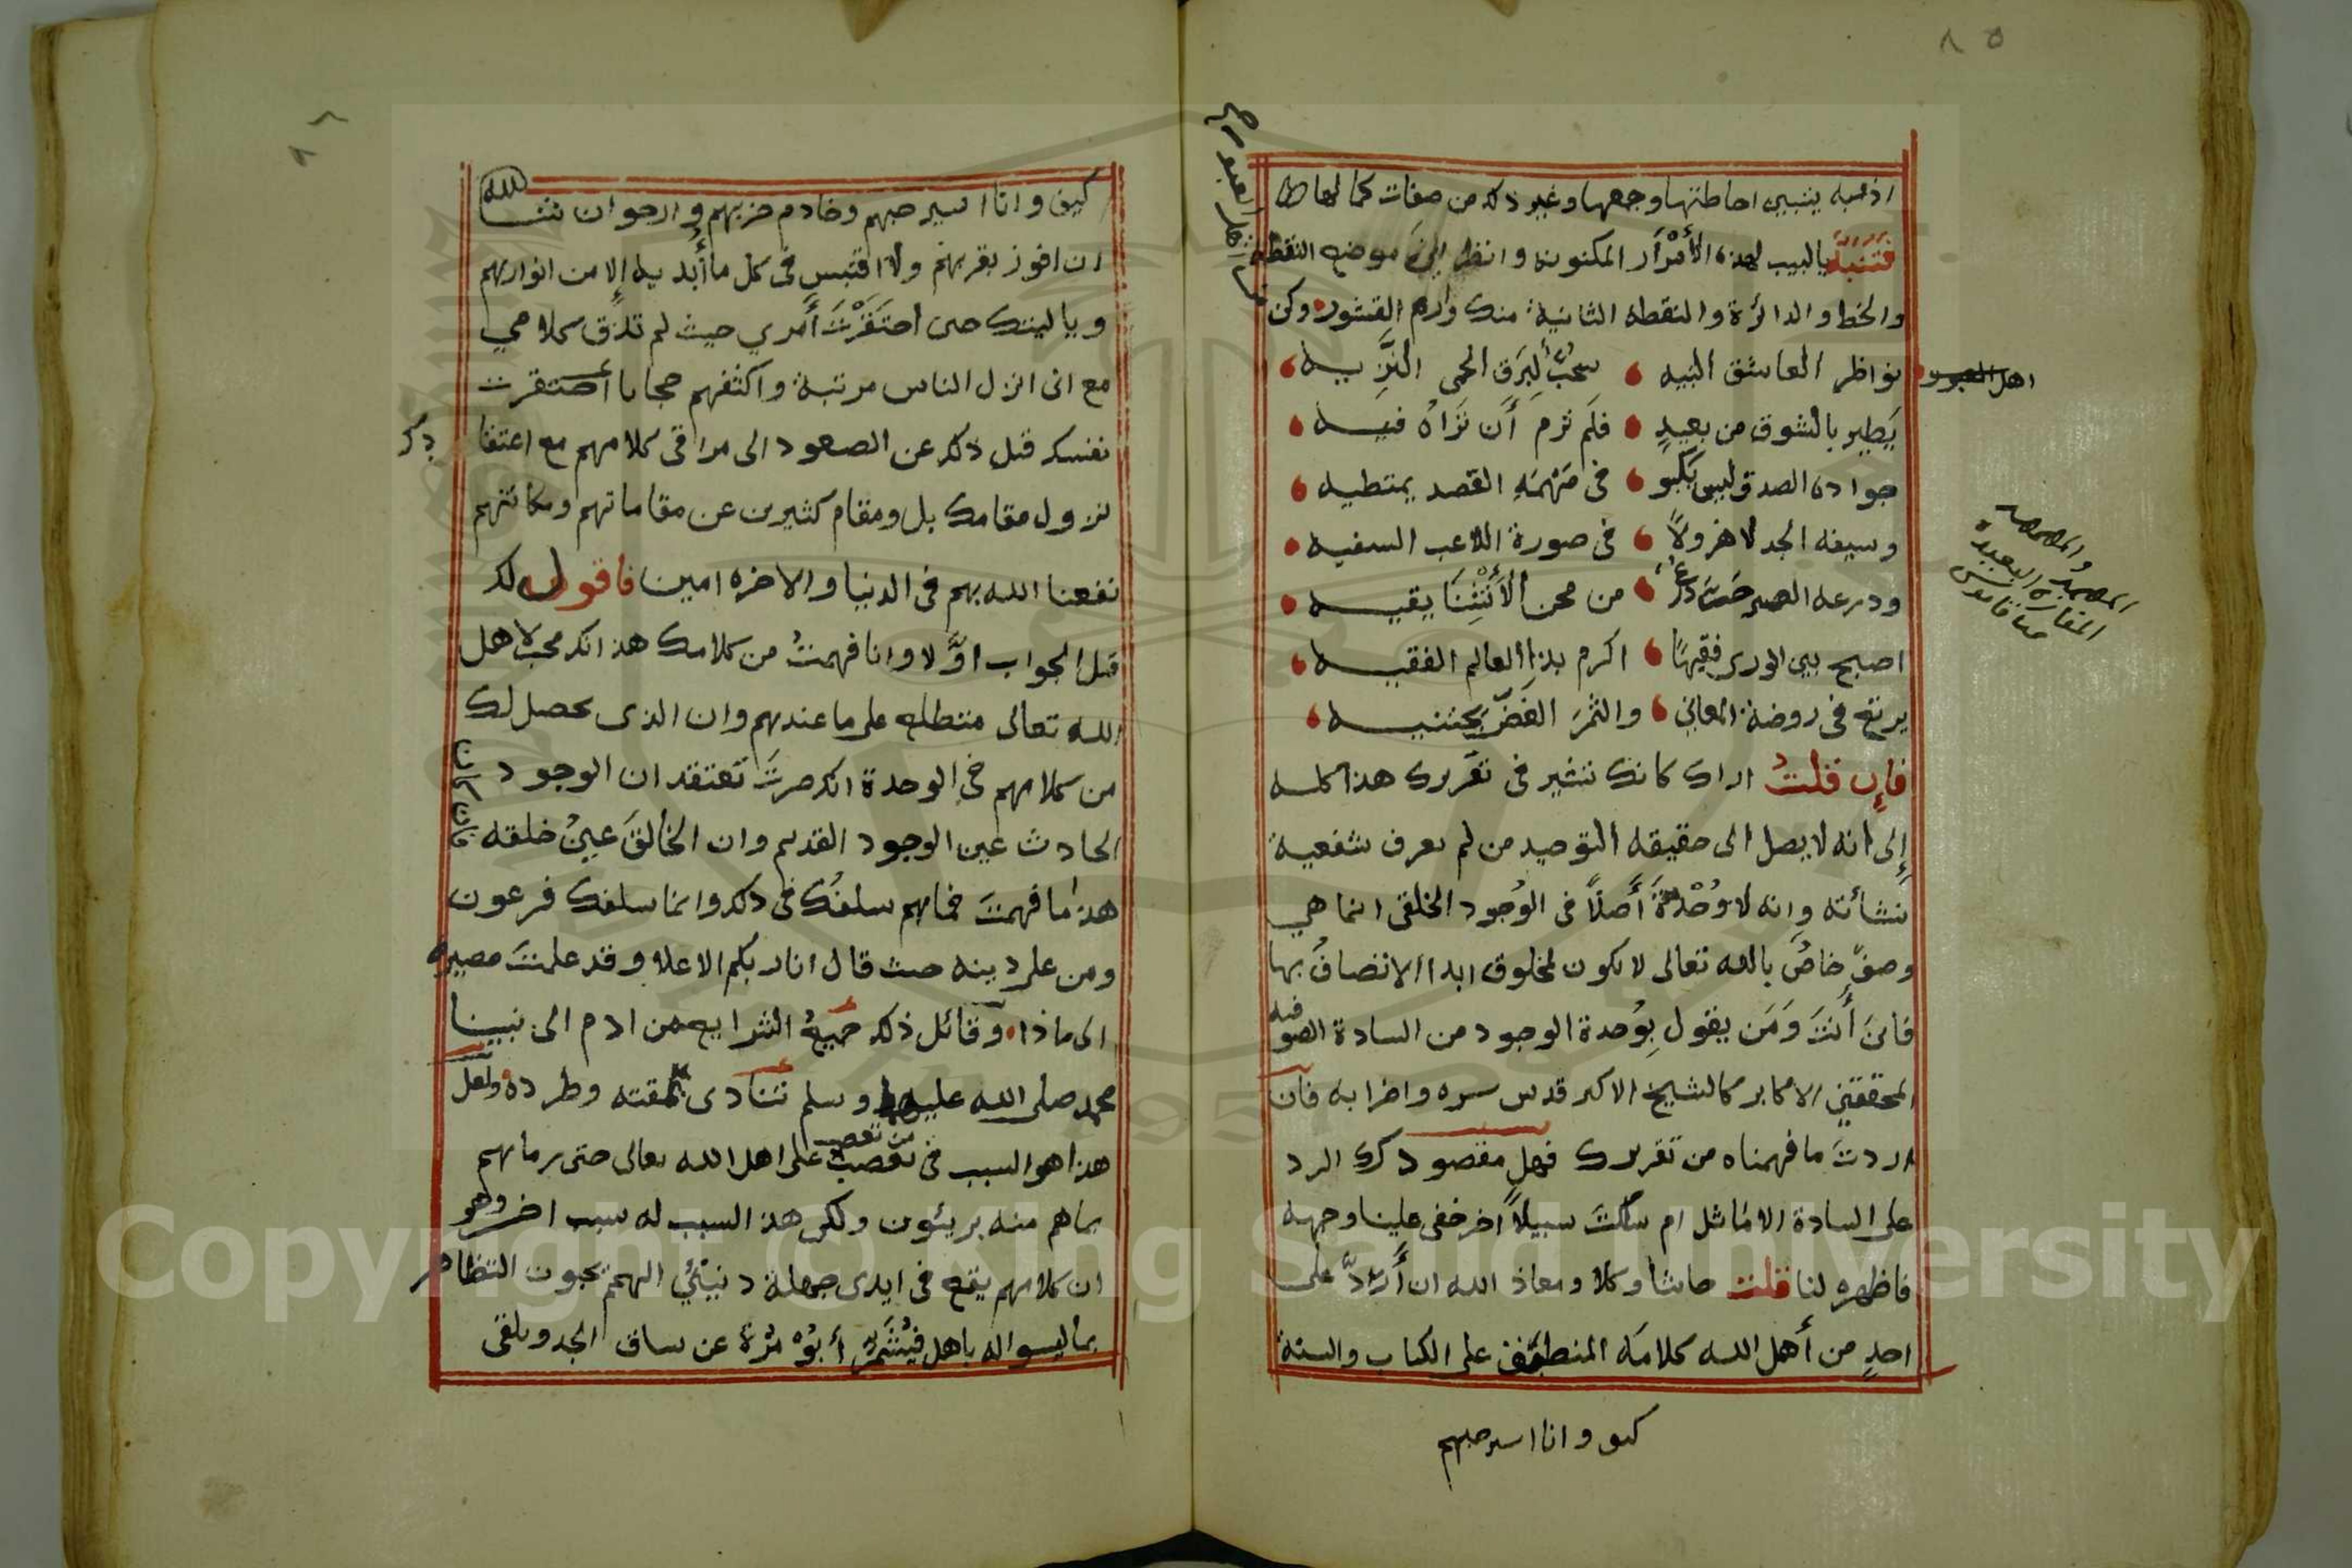 ٨٥
اذ به يتبين احاطتها وجمعها وغير ذلك من صفات كمالها
فتنبه يا لبيب لهذه الأسرار المكنونه وانظر اين موضع النقطة
والخط والدائرة والنقطه الثانية منك وارم القشور وكن
من اهل العبور صح
نواظر العاشق النبيه سحب لبرق الحمى النزيه
يطير بالشوق من بعيد فلم ترم أن تراه فيه
جواده الصدق ليس يكبو في مهمه القصد يمتطيه
وسيفه الجد لا هزولاً في صورة اللاعب السفيه
ودرعه الصبر من محن الأنثنا يقيه
اصبح بين الورى فقيهًا اكرم بذا العالم الفقيه
يرتع في روضة المعاني والثمر الغض يجتنيه
فإن قلت اراك كانك تشير في تقريرك هذا كله
إلى انه لا يصل الى حقيقه التوحيد من لم يعرف شفعية
نشأته وانه لا وحدة أصلاً في الوجود الخلقى انما هي
وصف خاص بالله تعالى لا يكون لمخلوق ابدا الاتصاف بها
فاين أنت ومن يقول بوحدة الوجود من السادة الصوفيه
المحققين الاكابر كالشيخ الاكبر قدس سره واضرابه فان
اردت ما فهمناه من تقريرك فهل مقصودك الرد
على السادة الاماثل ام سلكت سبيلاً اخر خفى علينا وجهه
فاظهره لنا قلت حاشا وكلا ومعاذ الله ان أرد على
احد من أهل الله كلامه المنطبق على الكتاب والسنة
كيف وانا اسير حبهم
اهل العبور
والمهمه
المفازة البعيدة
قاموس
٨٦
كيف وانا اسير حبهم وخادم حزبهم وارجو ان شا الله
ان افوز بقربهم ولا اقتبس في كل ما أبديه إلا من انوارهم
ويا ليتك حين احتقرت أمري حيث لم تذق كلامي
مع انى انزل الناس مرتبة واكثفهم حجابا أحتقرت
نفسك قبل ذلك عن الصعود الى مراقى كلامهم مع اعتقادك
لنزول مقامك بل ومقام كثيرين عن مقاماتهم ومكانتهم
نفعنا الله بهم في الدنيا والاخره امين فاقول لك
قبل الجواب اوّلا وانا فهمت من كلامك هذا انك محب لاهل
الله تعالى متطلع على ما عندهم وان الذى يحصل لك
من كلامهم في الوحدة انك صرت تعتقد ان الوجود
الحادث عين الوجود القديم وان الخالق عين خلقه فان كان
هذا ما فهمت فما هم سلفك في ذلك وانما سلفك فرعون
ومن على دينه حيث قال انا ربكم الاعلا وقد علمت مصيره
الى ماذا وقائل ذلك جميع الشرايع من ادم الى نبينا
محمد صلى الله عليه وسلم تنادى بمقته وطرده ولعل
هذا هو السبب في تعصب من تعصب على اهل الله تعالى حتى رماهم
بما هم منه بريئون ولكن هذا السبب له سبب اخر وهو
ان كلامهم يقع في ايدى جهلة دنيئي الهمم يحبون التظاهر
بما ليسوا له باهل فيشمر أبو مرة عن ساق الجد ويلقى
Copyright © King Saud University
1957